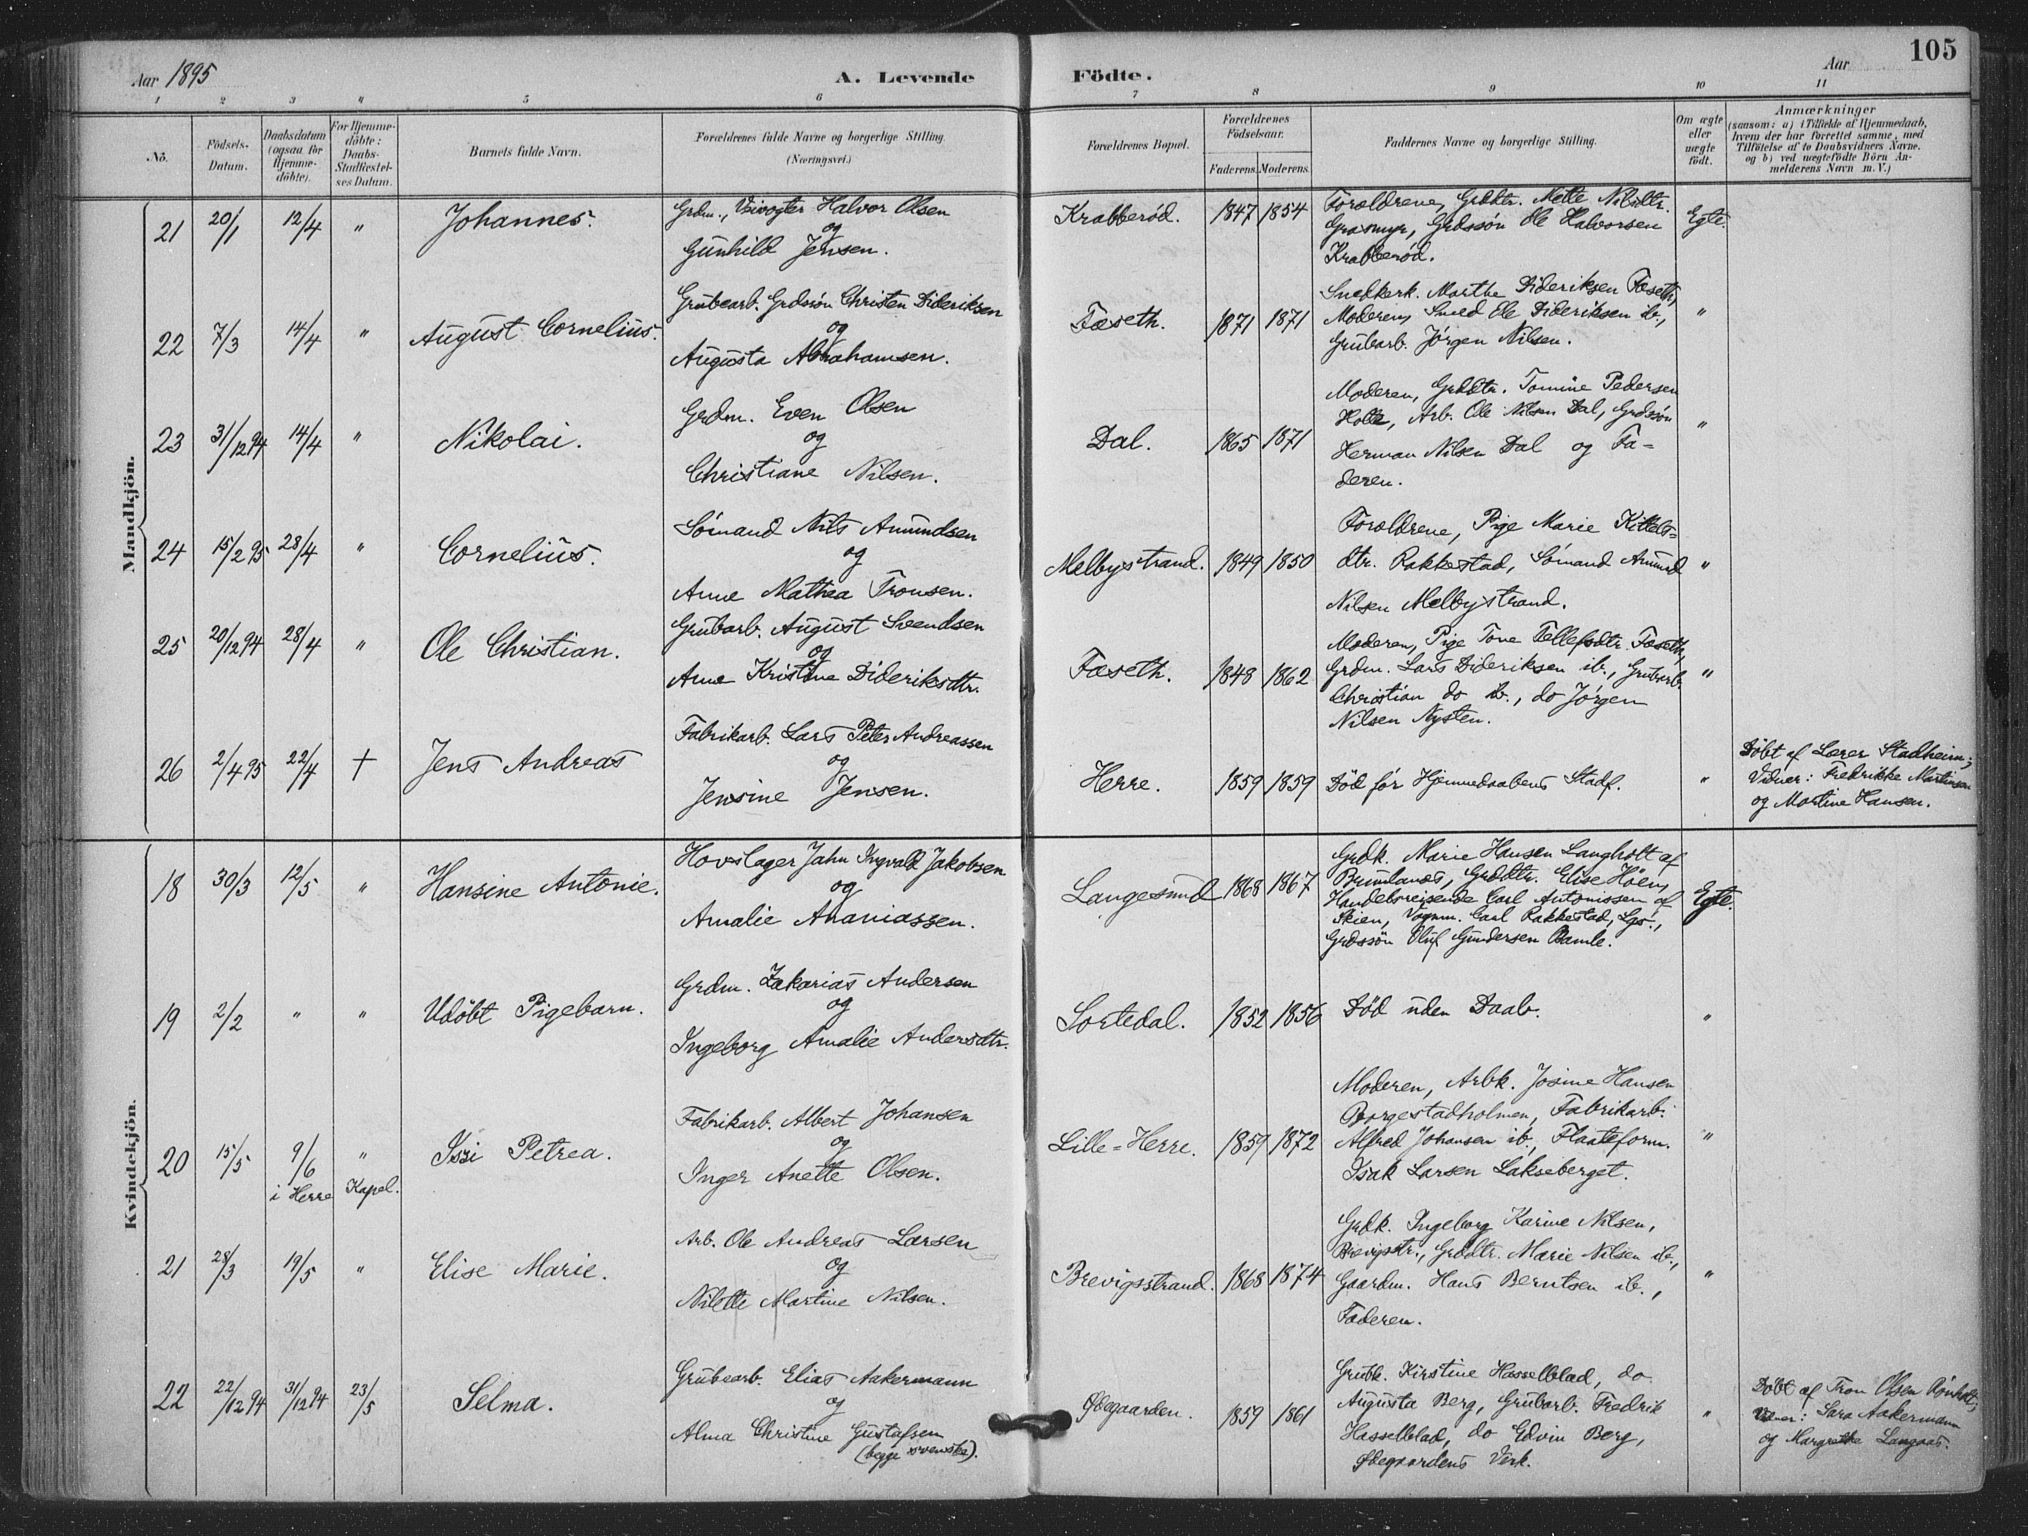 105
Aar 1895
A. Levende
Födte.
Aar
1 2 3 " 5 6 7 8 9 10 11
No.
Födsels-Datum.
Daabsdatum (ogsaa for Hjemmedöbte).
For Hjemmedöbte: Daabs-Stadfæstelses Datum.
Barnets fulde Navn.
Forældrenes fulde Navne og borgerlige Stilling. (Næringsvei.)
Forældrenes Bopæl.
Forældrenes Födselsaar.
Faderens. Moderens.
Faddernes Navne og borgerlige Stilling.
Om ægte eller uægte födt.
Anmærkninger
(saasom: a) i Tilfælde af Hjemmedaab, hvem der har forrettet samme, med Tilföielse af to Daabsvidners Navne. og b) ved uægtefödte Börn Anmelderens Navn m. V.)
Mandkjön.
21 20/1 12/4 " Johannes.
Grdm., Halvor Olsen
og
Gunhild Jensen.
Krabberød. 1847 1854
Forældrene, Grddtr. Mette Nilsdtr.
Grasmyr, Grdssøn Ole Halvorsen
Krabberød.
Egte.
22 7/3 14/4 " August Cornelius.
Grubearb. Grdssøn Christen Dideriksen
og
Augusta Abrahamsen.
Fæseth. 1871 1871
Snedkerk. Marthe Dideriksen Fæseth,
Moderen, Smed Ole Dideriksen ib.,
Grubarb. Jørgen Nilsen.
"
23 31/12 94 14/4 " Nikolai.
Grdm. Even Olsen
og
Christiane Nilsen.
Dal. 1865 1871
Moderen, Grddtr. Tomine Pedersen
Holte, Arb. Ole Nilsen Dal, Grdssøn
Herman Nilsen Dal og Fa-
deren.
"
24 15/2 95 28/4 " Cornelius.
Sømand Nils Amundsen
og
Anne Mathea Tronsen.
Melbystrand. 1849 1850
Forældrene, Pige Marie Kittels-
dtr. Rakkestad, Sømand Amund
Nilsen Melbystrand.
"
25 20/12 94 28/4 " Ole Christian.
Grubarb. August Svendsen
og
Anne Kristine Dideriksdtr.
Fæseth. 1848 1862
Moderen, Pige Tone Tellefsdtr. Fæseth,
Grdm. Lars Dideriksen ib., Grubarb.
Christian do ib., do Jørgen
Nilsen Nysten.
"
26 2/4 95 22/4 † Jens Andreas
Fabrikarb. Lars Peter Andreassen
og
Jensine Jensen.
Herre. 1859 1859
Død før Hjemmedaabens Stadf.
"
Døbt af Lærer Stadheim;
Vidner: Fredrikke Martinsen
og Martine Hansen.
Kvindekjön.
18 30/3 12/5 " Hansine Antonie.
Hovslager Jahn Ingvald Jakobsen
og
Amalie Ananiassen.
Langesund 1868 1867
Grdk. Marie Hansen Langholt af
Brunlanæs, Grddtr. Elise Høen,
Handelsreisende Carl Antonissen af
Skien, Vognm. Carl Rakkestad, Lgs.,
Grdssøn Oluf Gundersen Bamle.
Egte.
19 2/2 " " Udøbt Pigebarn.
Grdm. Zakarias Andersen
og
Ingeborg Amalie Andersdtr.
Sortedal. 1852 1856
Død uden Daab.
"
20 15/5 9/6 i Herre " Kapel. Issi Petrea.
Fabrikarb. Albert Johansen
og
Inger Anette Olsen.
Lille-Herre. 1859 1872
Moderen, Arbk. Josine Hansen
Borgestadholmen, Fabrikarb.
Alfred Johansen ib., Flaateform.
Isak Larsen Lakseberget.
"
21 28/3 19/5 " Elise Marie.
Arb. Ole Andreas Larsen
og
Nilette Martine Nilsen.
Brevigsstrand. 1868 1874
Grdk. Ingeborg Karine Nilsen,
Brevigstr., Grddtr. Marie Nilsen ib.,
Gaardm. Hans Berntsen ib.,
Faderen.
"
22 22/12 94 31/12 94 23/5 Selma.
Grubearb. Elias Aakermann
og
Alma Christine Gustafsen
(begge svenske).
Ødegaarden. 1859 1861
Grubk. Kirstine Hasselblad, do
Augusta Berg, Grubarb. Fredrik
Hasselblad, do Edvin Berg,
Ødegaardens Verk.
"
Døbt af Tron Olsen Rønholt;
Vidner: Sara Aakermann
og Margrethe Langaas.